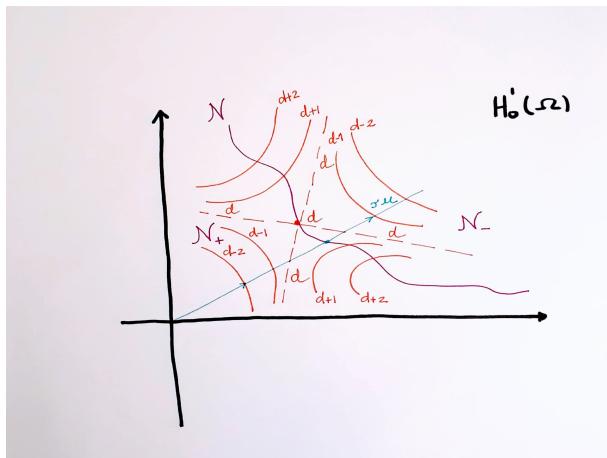 H¹₀(Ω)
N
d+2
d+1
d-1
d-2
d
d
d
ru
N₊
d-1
d-2
d
N₋
d
d+1
d+2